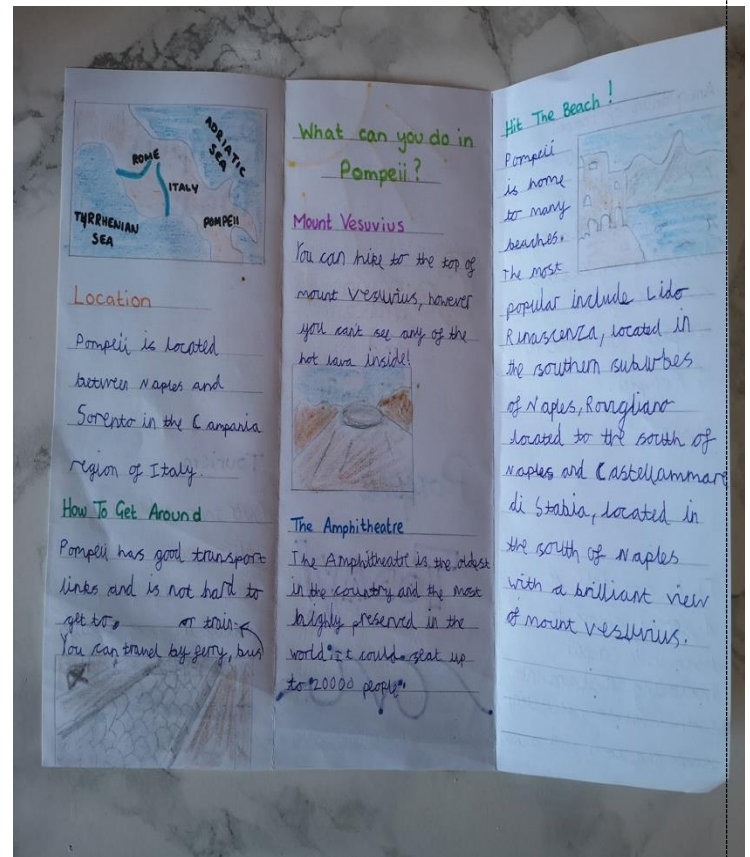 ADRIATIC
SEA
ROME
ITALY
TYRRHENIAN
SEA
POMPEII
Location
Pompeii is located
between Naples and
Sorento in the Campania
region of Italy.
How To Get Around
Pompeii has good transport
links and is not hard to
get to.
You can travel by ferry, bus
or train
What can you do in
Pompeii?
Mount Vesuvius
You can hike to the top of
mount Vesuvius, however
you can't see any of the
hot lava inside!
The Amphitheatre
The Amphitheatre is the oldest
in the country and the most
highly preserved in the
world. It could seat up
to 20000 people.
Hit The Beach!
Pompeii
is home
to many
beaches.
The most
popular include Lido
Rinascenza, located in
the southern suburbes
of Naples, Rovigliano
located to the south of
Naples and Castellammare
di Stabia, located in
the south of Naples
with a brilliant view
of mount Vesuvius.